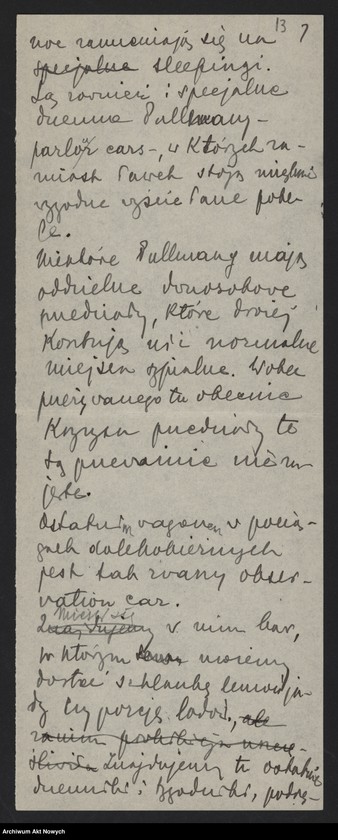 13 7
noc zamieniają się na
specjalne sleepingi.
Są również i specjalne
dzienne Pullmany -
parlor cars -, w których za-
miast ławek stoją miękkie
wygodne wyściełane fote-
le.
Niektóre Pullmany mają
oddzielne dwuosobowe
przedziały, które drożej
kosztują niż normalne
miejsca sypialne. Wobec
przeżywanego tu obecnie
kryzysu przedziały te
są przeważnie nieza-
jęte.
Ostatnim wagonem w pocią-
gach dalekobieżnych
jest tak zwany obser-
vation car.
Mieści się
Znajdujemy w nim bar,
w którym możemy
dostać szklankę lemonja-
dy czy porcję lodów, ale
zanim prohibicja
Znajdujemy tu ostatnie
dzienniki i tygodniki,
Archiwum Akt Nowych